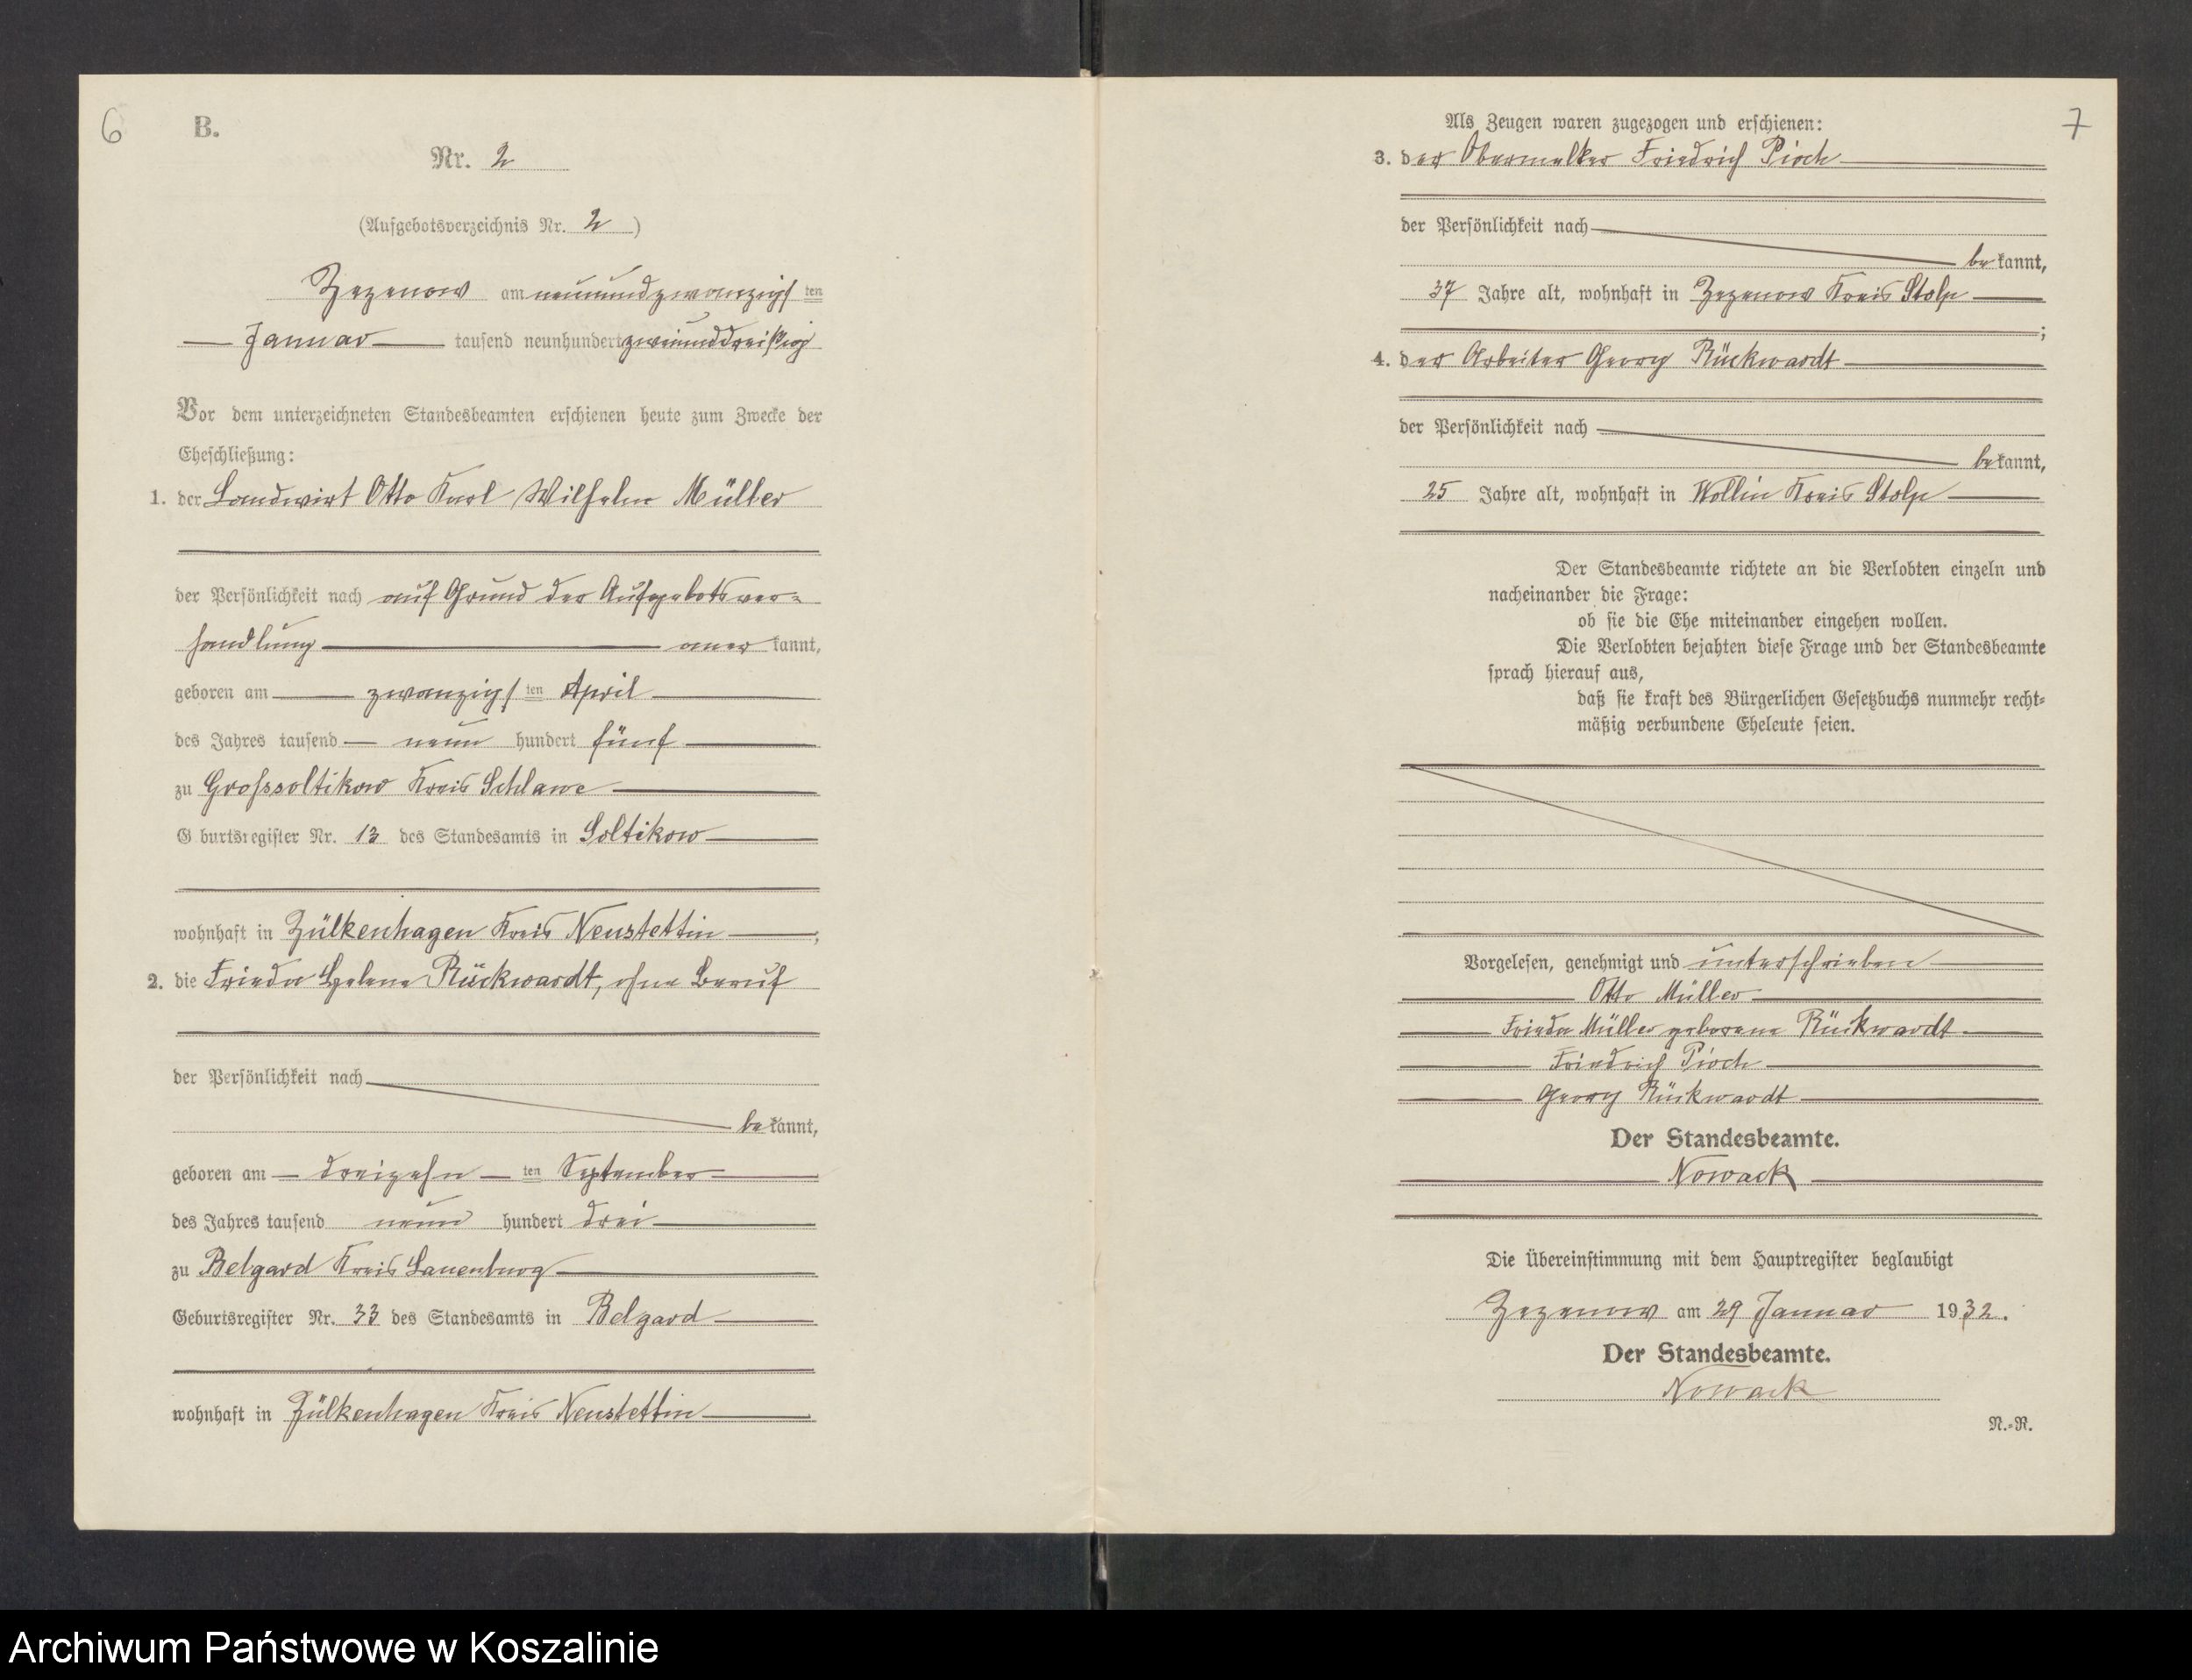 6
B.
Nr. 2
(Aufgebotsverzeichnis Nr. 2)
Zezenow am neunundzwanzigsten
Januar tausend neunhundert zweiunddreißig
Vor dem unterzeichneten Standesbeamten erschienen heute zum Zwecke der
Eheschließung:
1. der Landwirt Otto Karl Wilhelm Müller
der Persönlichkeit nach auf Grund der Aufgebotsver-
handlung anerkannt,
geboren am zwanzigsten April
des Jahres tausend neun hundert fünf
zu Grosssoltikow Kreis Schlawe
G burtsregister Nr. 13 des Standesamts in Soltikow
wohnhaft in Zülkenhagen Kreis Neustettin;
2. die Frieda Helene Rückwardt, ohne Beruf
der Persönlichkeit nach
bekannt,
geboren am dreizehnten September
des Jahres tausend neun hundert drei
zu Belgard Kreis Lauenburg
Geburtsregister Nr. 33 des Standesamts in Belgard
wohnhaft in Zülkenhagen Kreis Neustettin
7
Als Zeugen waren zugezogen und erschienen:
3. der Obermelker Friedrich Pioch
der Persönlichkeit nach
bekannt,
37 Jahre alt, wohnhaft in Zezenow Kreis Stolp
;
4. der Arbeiter Georg Rückwardt
der Persönlichkeit nach
bekannt,
25 Jahre alt, wohnhaft in Wollin Kreis Stolp
Der Standesbeamte richtete an die Verlobten einzeln und
nacheinander die Frage:
ob sie die Ehe miteinander eingehen wollen.
Die Verlobten bejahten diese Frage und der Standesbeamte
sprach hierauf aus,
daß sie kraft des Bürgerlichen Gesetzbuchs nunmehr recht-
mäßig verbundene Eheleute seien.
Vorgelesen, genehmigt und unterschrieben
Otto Müller
Frieda Müller geborene Rückwardt
Friedrich Pioch
Georg Rückwardt
Der Standesbeamte.
Nowack
Die Übereinstimmung mit dem Hauptregister beglaubigt
Zezenow am 29 Januar 1932.
Der Standesbeamte.
Nowack
N.-R.
Archiwum Państwowe w Koszalinie